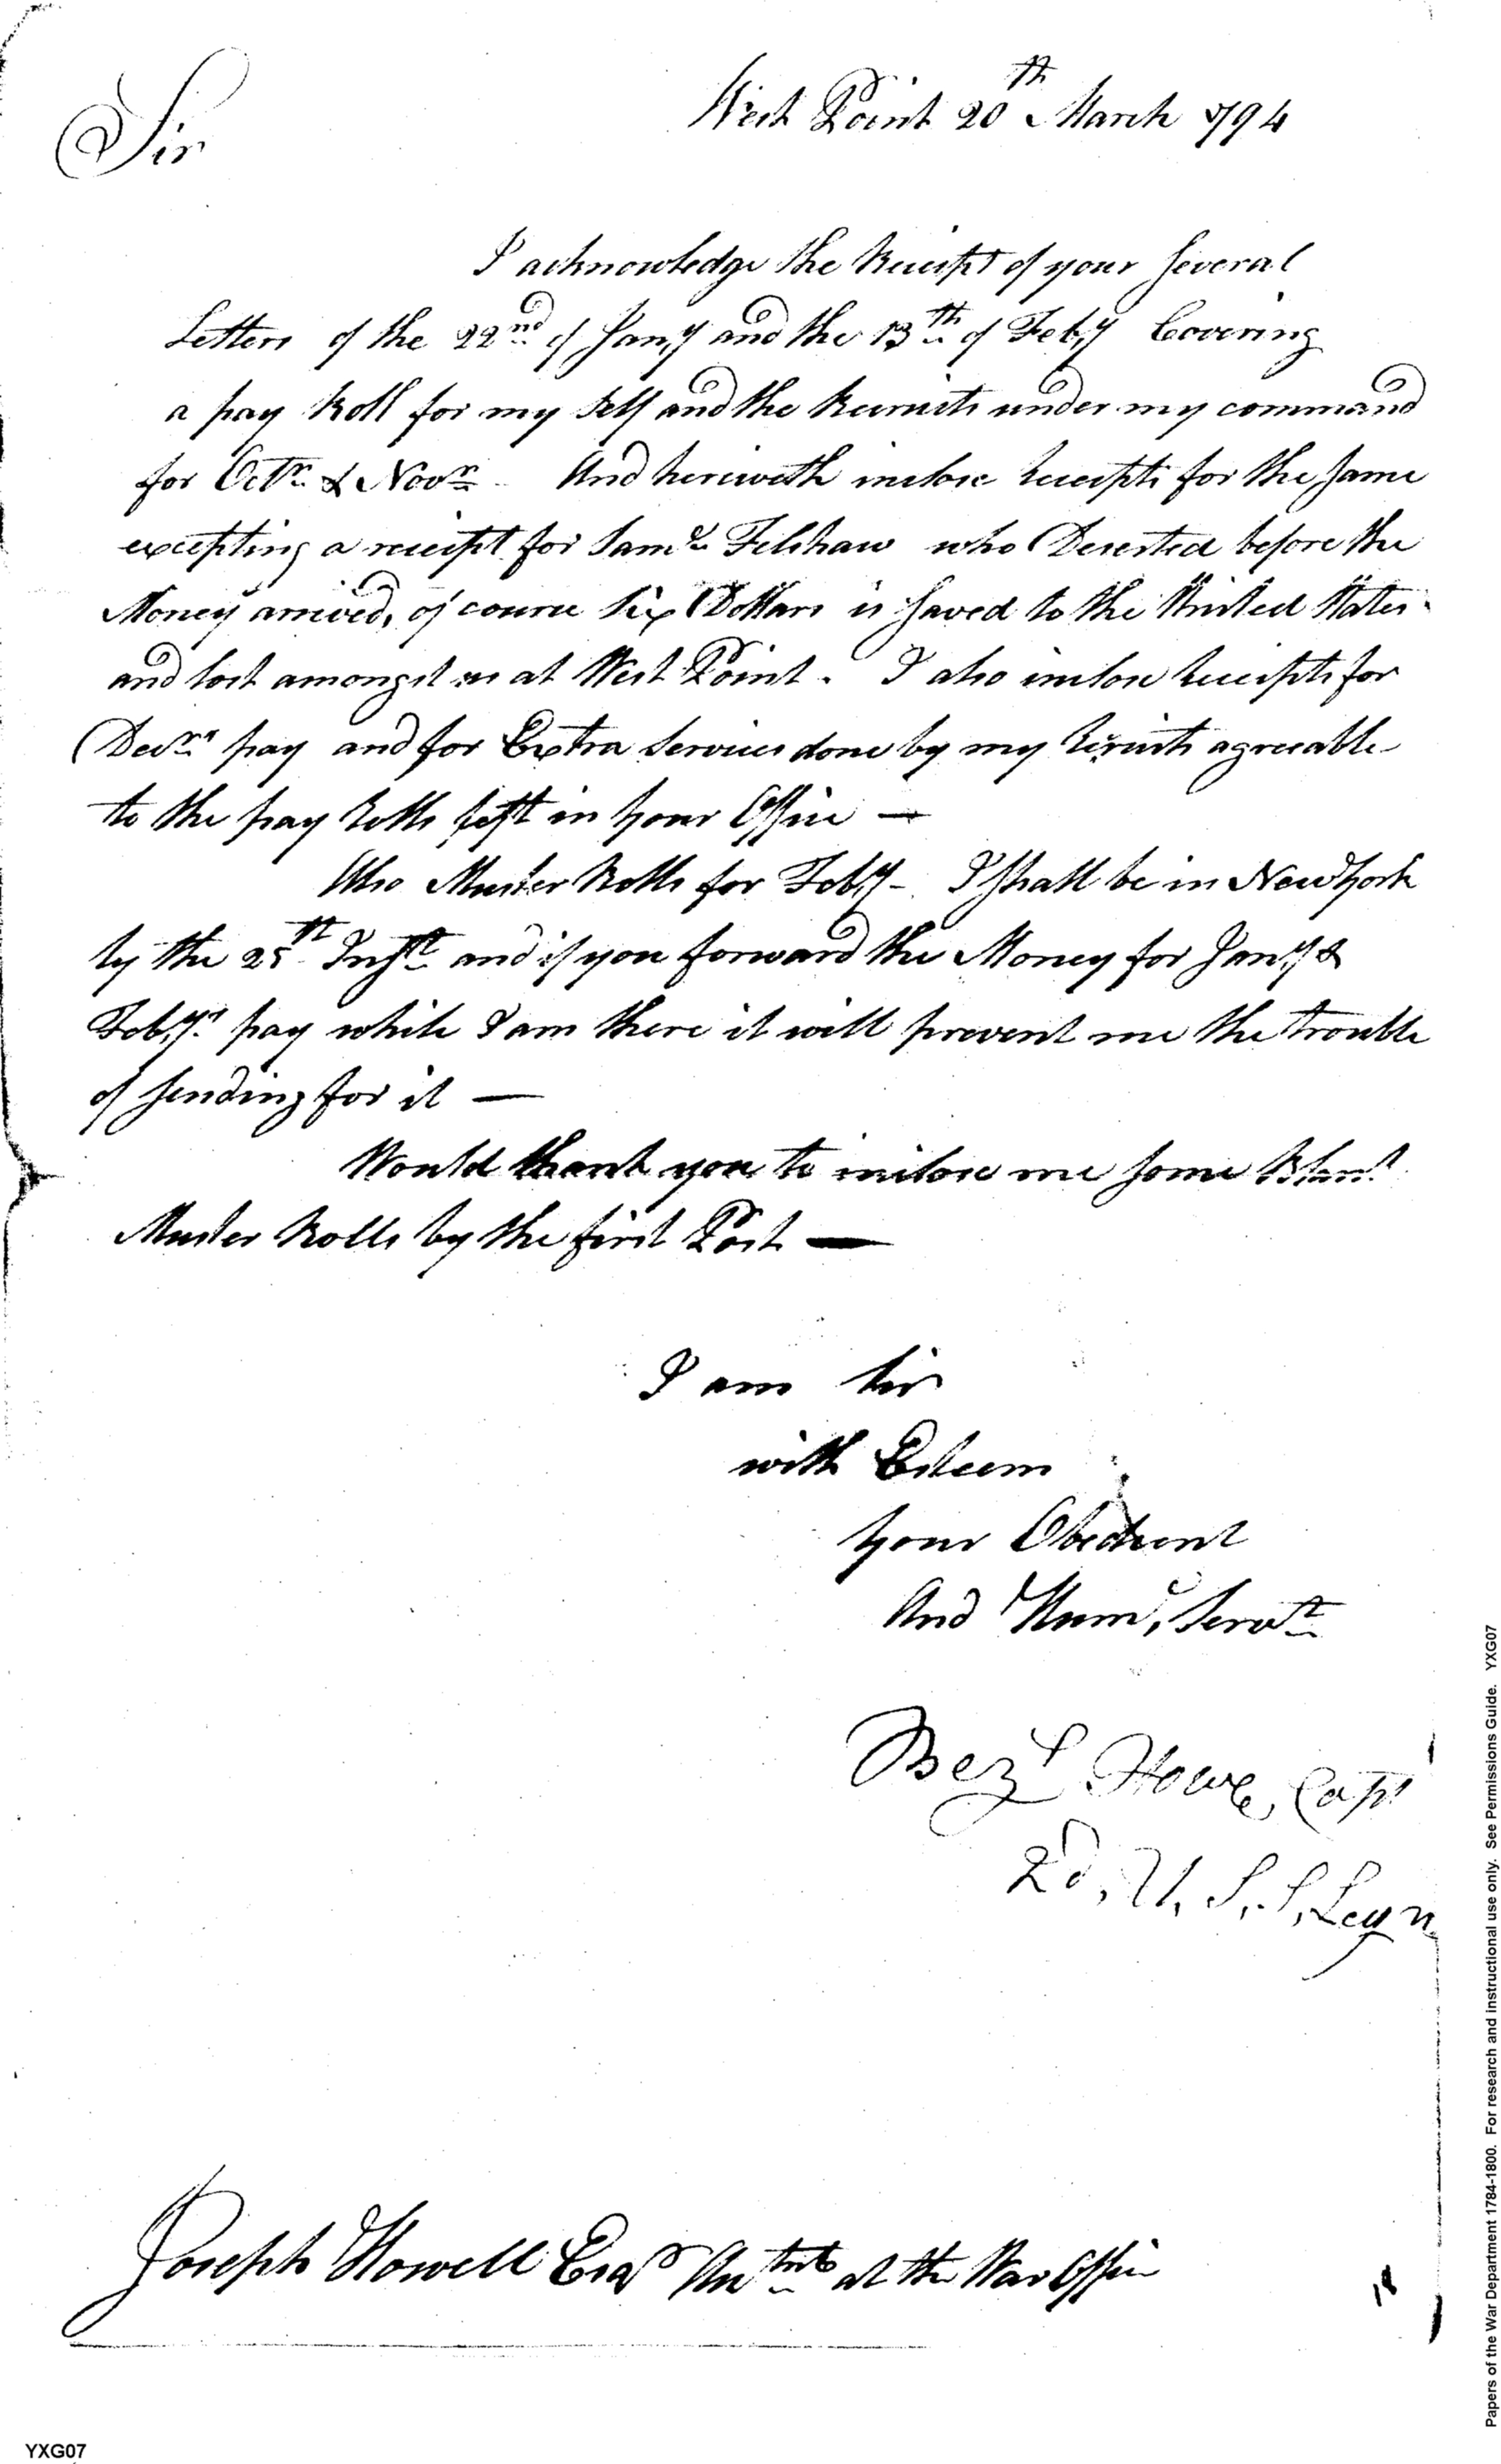 West Point 20th March 1794
Sir
I acknowledge the Receipt of your Several
Letters of the 22nd of Jany and the 13th of Feby Covering
a pay Roll for my Self and the Recruits under my command
for Octr. & Novr. And herewith inclose Receipts for the Same
excepting a receipt for Saml. Felshaw who Deserted before the
Money arrived, of course Six Dollars is Saved to the United States
and lost amongst us at West Point. I also inclose Receipts for
Decrs. pay and for Extra Services done by my Recruits agreeable
to the pay Rolls left in your Office —
Also Muster Rolls for Feby - I Shall be in New York
by the 25th Inst. and if you forward the Money for Jany &
Febys. pay while I am there it will prevent me the trouble
of Sending for it —
Would thank you to inclose me Some Blank
Muster Rolls by the first Post —
I am Sir
with Esteem
your Obedient
And Huml, Servt.
Bezl Howe, Capt
2d, U, S, S, Legn
Joseph Howell Esqr at the War Office
18
Papers of the War Department 1784-1800. For research and instructional use only. See Permissions Guide. YXG07
YXG07